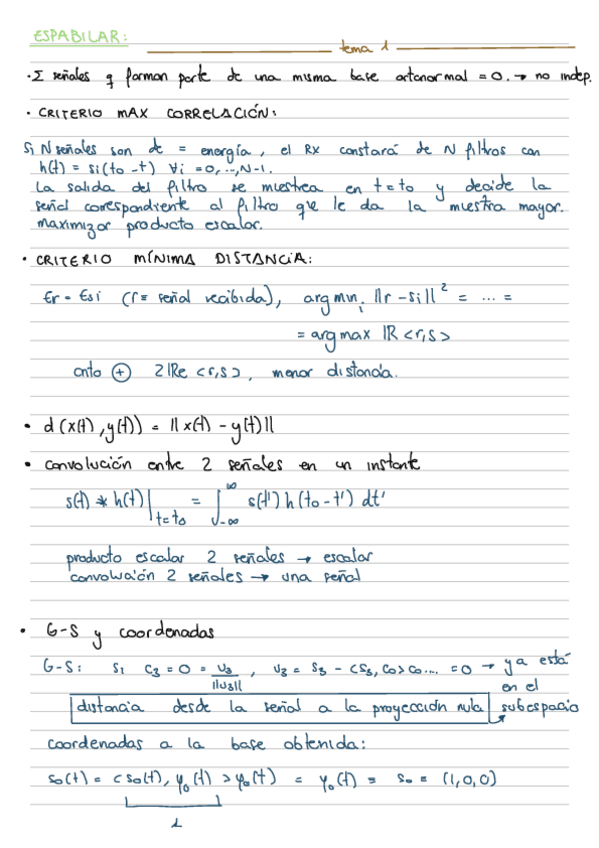 ESPABILAR:
tema 1
· Σ señales q forman parte de una misma base ortonormal = 0. → no indep.
· CRITERIO MAX CORRELACIÓN:
Si N señales son de = energía, el Rx constará de N filtros con
h(t) = si(to - t) ∀i = 0, ..., N-1.
La salida del filtro se muestrea en t = to y decide la
señal correspondiente al filtro que le da la muestra mayor.
maximizar producto escalar.
· CRITERIO MÍNIMA DISTANCIA:
Er = Esi (r = señal recibida), argmin i ||r - si||² = ... =
= argmax IR <r,s>
cnto ⊕ 2 IRe <r,s>, menor distancia.
· d(x(t), y(t)) = ||x(t) - y(t)||
· convolución entre 2 señales en un instante
s(t) * h(t)|t=to = ∫-∞^∞ s(t') h(to - t') dt'
producto escalar 2 señales → escalar
convolución 2 señales → una señal
· G-S y coordenadas
G-S: si C3 = 0 = U3/||U3||, U3 = S3 - <S3, Co> Co... = 0 → ya está
en el
distancia desde la señal a la proyección nula subespacio
coordenadas a la base obtenida:
So(t) = <So(t), φo(t)> φo(t) = φo(t) = So = (1,0,0)
1